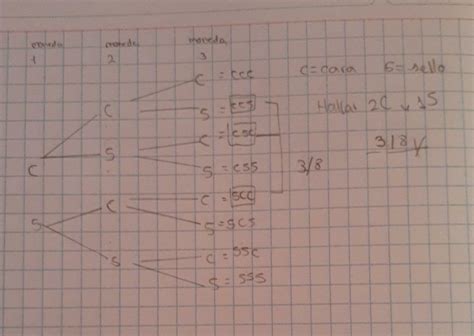 moneda 1 moneda 2 moneda 3
C = cara S = sello
Hallar 2C y 1S
3/8
C
C
C = CCC
S = CCS
S
C = CSC
S = CSS
3/8
S
C
C = SCC
S = SCS
S
C = SSC
S = SSS